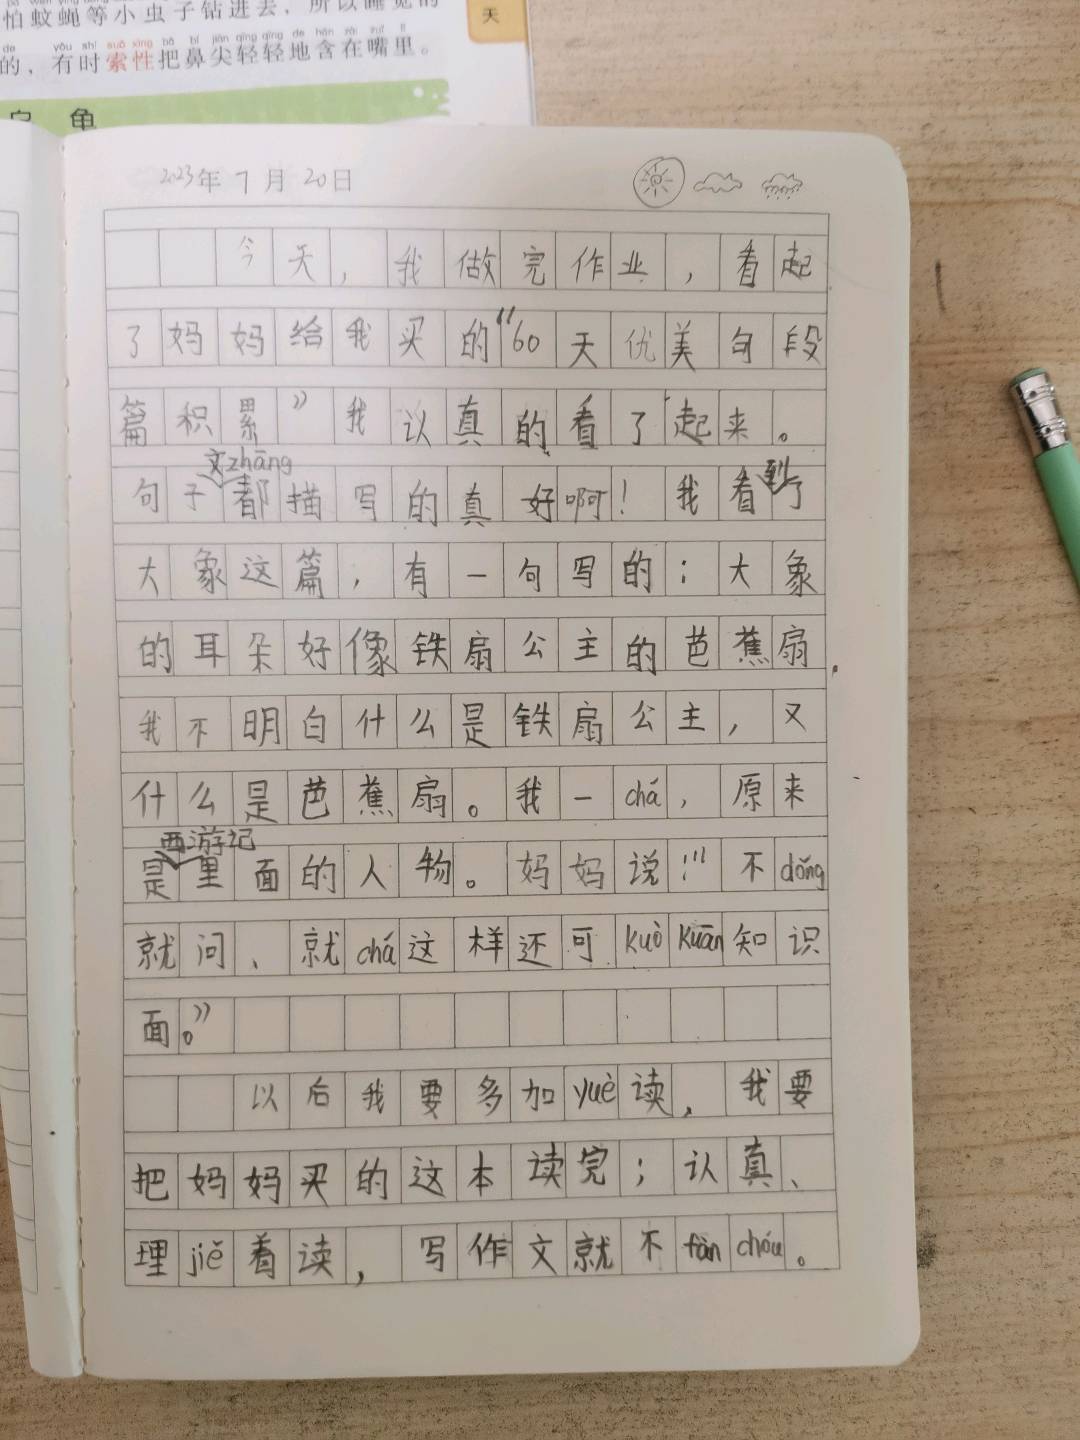 怕蚊蝇等小虫子钻进去，所以睡觉的
de yǒu shí suǒ xìng bǎ bí jiān qīng qīng de hán zài zuǐ lǐ
的，有时索性把鼻尖轻轻地含在嘴里。
天
龟
2023年7月20日
今天，我做完作业，看起
了妈妈给我买的“60天优美句段
篇积累”我认真的看了起来。
文zhāng
句子都描写的真好啊！我看到了
大象这篇，有一句写的：大象
的耳朵好像铁扇公主的芭蕉扇。
我不明白什么是铁扇公主，又
什么是芭蕉扇。我一chá，原来
西游记
是里面的人物。妈妈说：“不dǒng
就问、就chá这样还可kuò kuān知识
面。”
以后我要多加yuè读，我要
把妈妈买的这本读完；认真、
理jiě着读，写作文就不fān chóu。